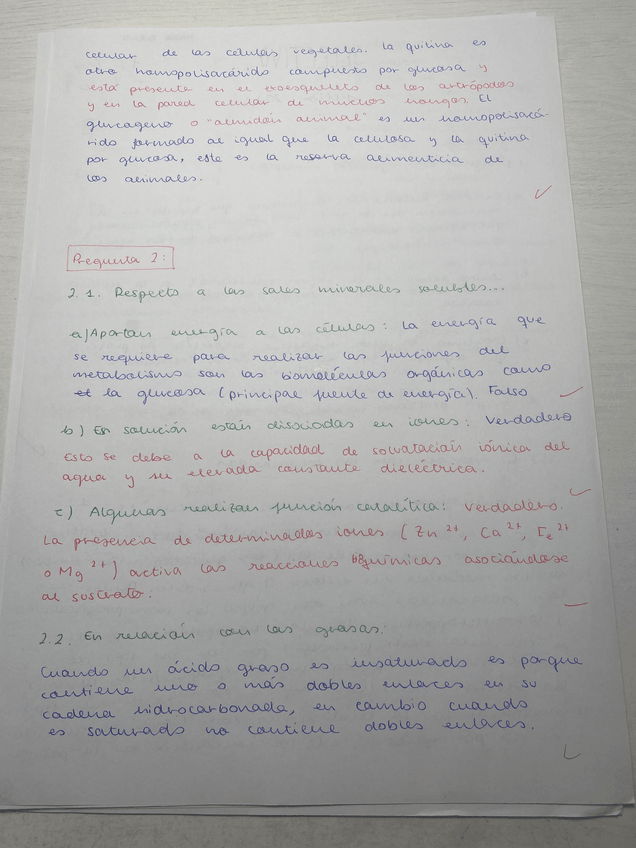 celular de las células vegetales. La quitina es
otro homopolisacárido compuesto por glucosa y
está presente en el exoesqueleto de los artrópodos
y en la pared celular de muchos hongos. El
glucogeno o "almidón animal" es un homopolisacá-
rido formado al igual que la celulosa y la quitina
por glucosa, este es la reserva alimenticia de
los animales.
Pregunta 2:
2.1. Respecto a las sales minerales solubles...
a) Aportan energía a las células: La energía que
se requiere para realizar las funciones del
metabolismo son las biomoléculas orgánicas como
la glucosa (principal fuente de energía). Falso
b) En solución están disociadas en iones: Verdadero
Esto se debe a la capacidad de solvatación iónica del
agua y su elevada constante dieléctrica.
c) Algunas realizan función catalítica: Verdadero.
La presencia de determinados iones (Zn 2+, Ca 2+, Fe 2+
o Mg 2+) activa las reacciones químicas asociándose
al sustrato.
2.2. En relación con las grasas:
Cuando un ácido graso es insaturado es porque
contiene uno o más dobles enlaces en su
cadena hidrocarbonada, en cambio cuando
es saturado no contiene dobles enlaces.